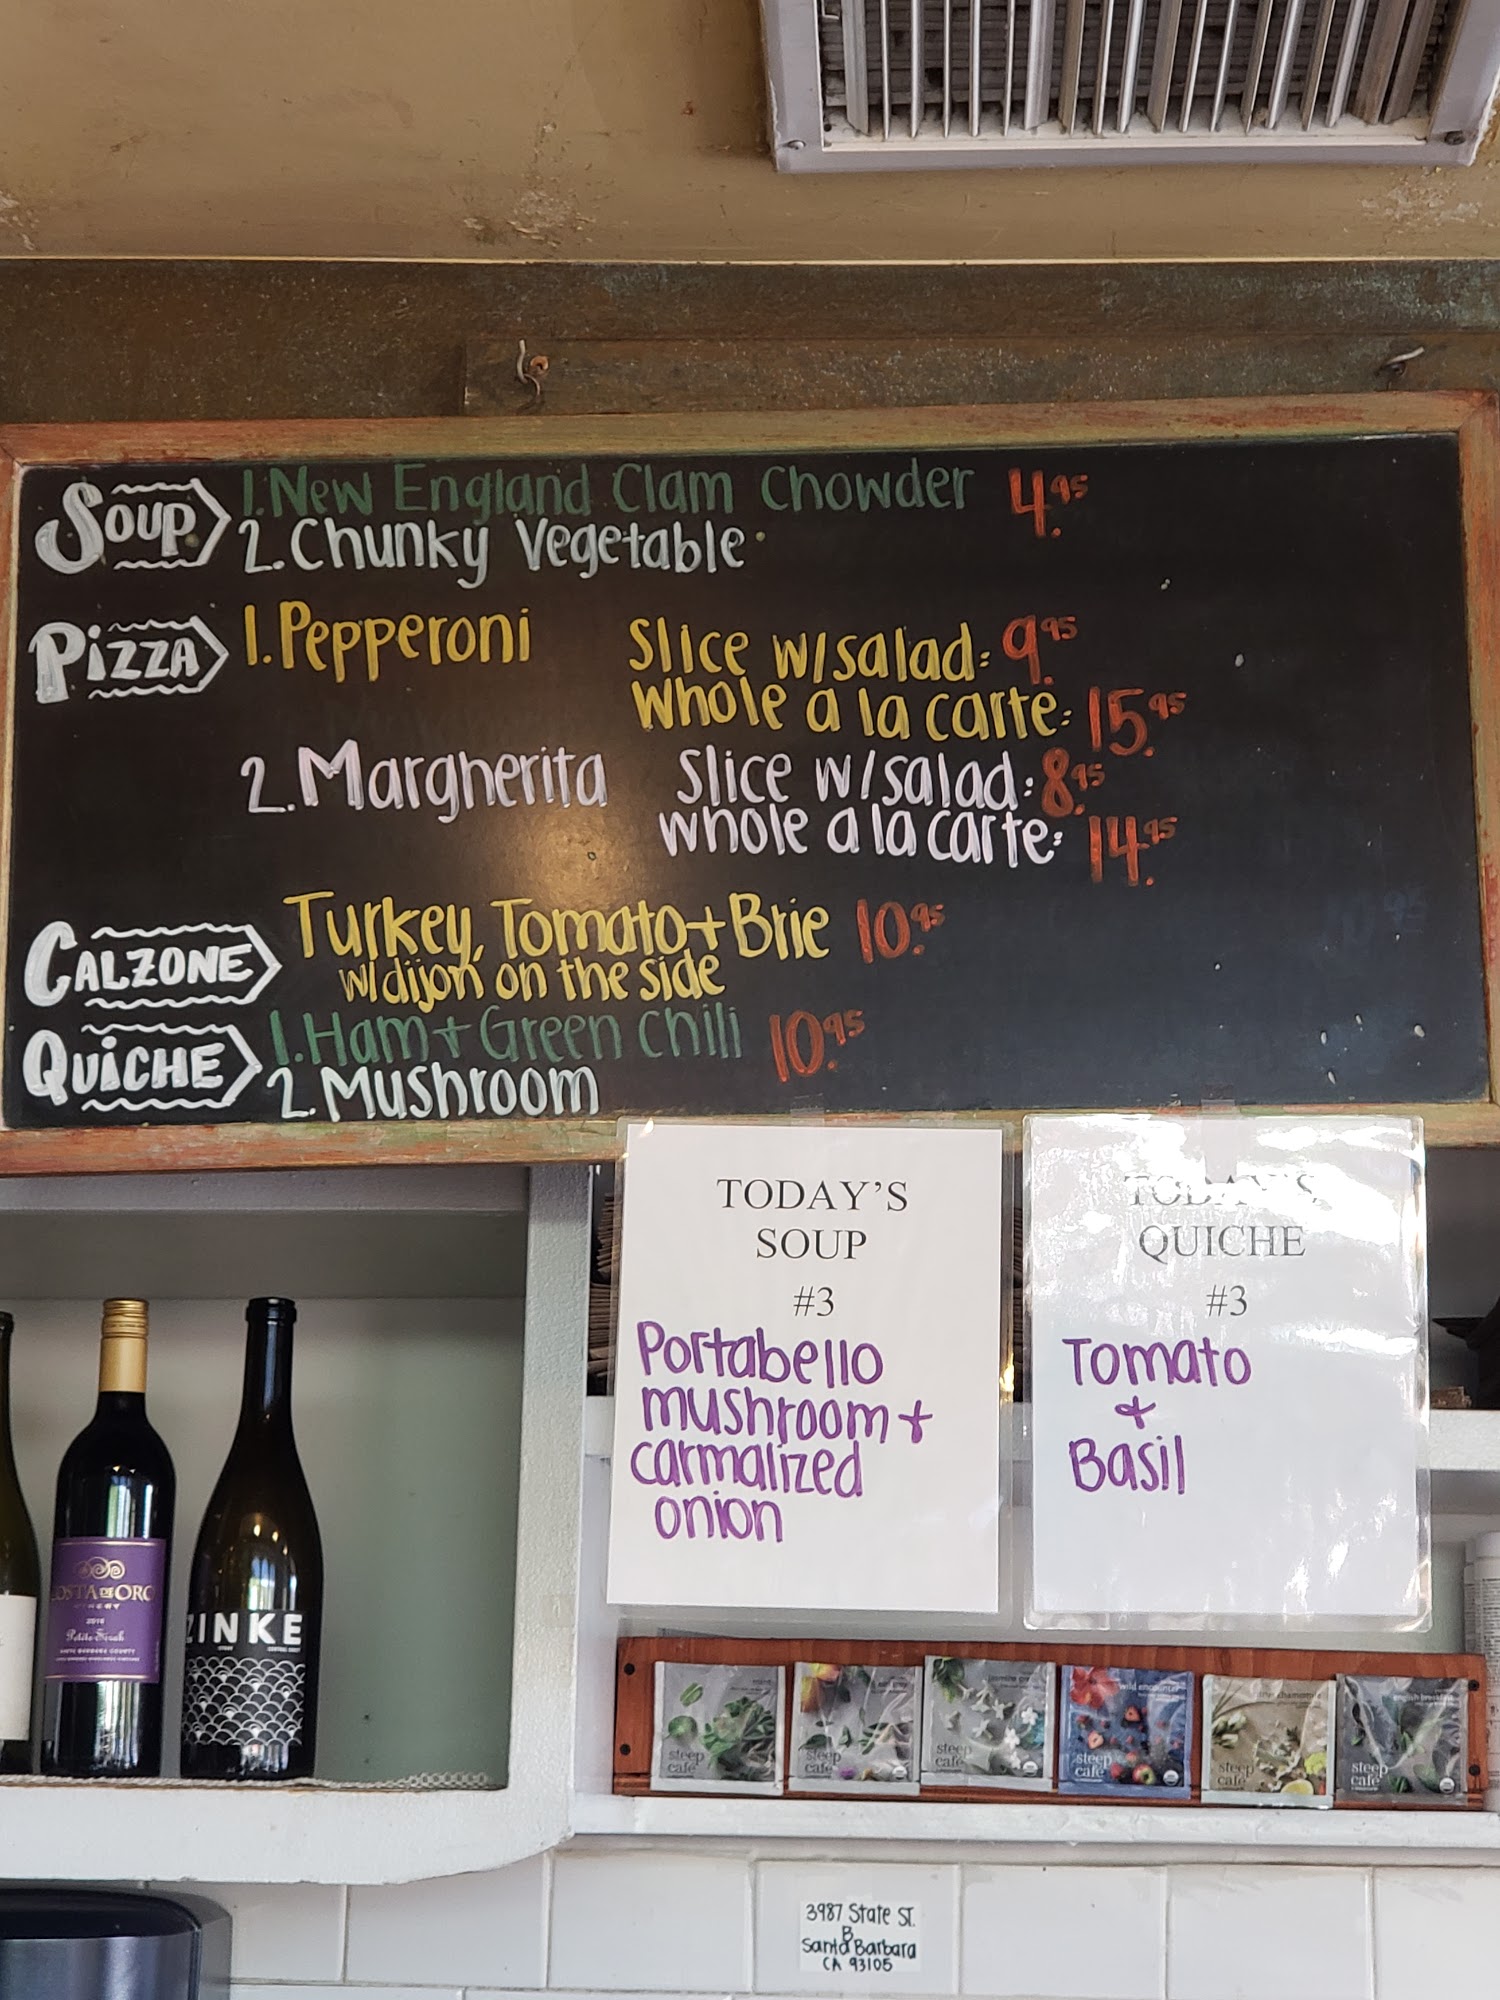 Soup 1. New England Clam Chowder 4.95
2. Chunky Vegetable
Pizza 1. Pepperoni Slice w/salad: 9.95
whole a la carte: 15.95
2. Margherita Slice w/salad: 8.95
whole a la carte: 14.95
Calzone Turkey, Tomato + Brie 10.95
w/dijon on the side
Quiche 1. Ham + Green Chili 10.95
2. Mushroom
TODAY'S
SOUP
#3
Portabello
mushroom +
carmalized
onion
TODAY'S
QUICHE
#3
Tomato
+
Basil
COSTA DE ORO
WINERY
2016
Petite Sirah
SANTA BARBARA COUNTY
ZINKE
steep
café
steep
café
steep
café
wild encounter
steep
café
chamomile
steep
café
english breakfast
steep
café
3987 State St.
B
Santa Barbara
CA 93105